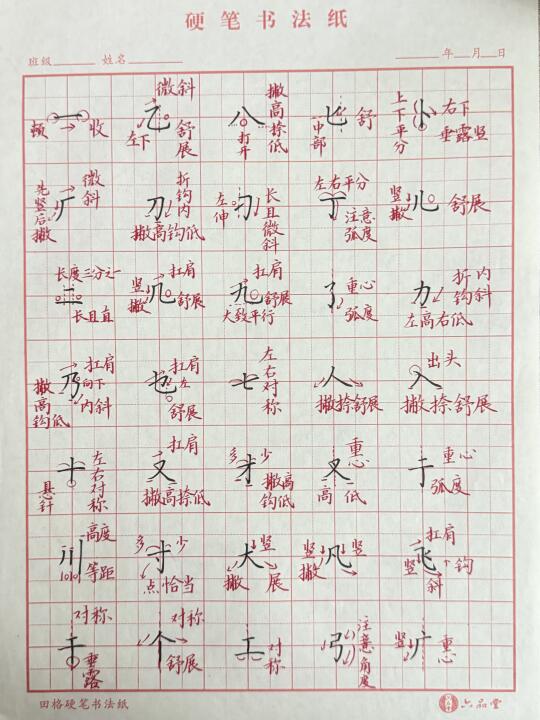 硬笔书法纸
班级 姓名 年 月 日
顿 一 收
微斜 乙 左下 舒展
八 撇高捺低 打开
匕 中部 舒
上下平分 卜 右下垂露竖
先竖后撇 厂 微斜
刀 折钩内 撇高钩低
左伸 勹 长且微斜
左右平分 丁 注意弧度
竖撇 儿 舒展
长度三分之一 二 长且直
竖撇 几 扛肩 舒展
九 扛肩 舒展 大致平行
了 重心 弧度
力 折钩内斜 左高右低
乃 扛肩向下内斜 撇高钩低
扛肩 左 舒展
七 左右对称
人 撇捺舒展
入 出头 撇捺舒展
十 左右对称 悬针
又 扛肩 撇高捺低
才 多 少 撇高钩低
叉 重心 高 低
于 重心 弧度
川 高度 等距
寸 多 少 点恰当
犬 竖撇 展
竖撇 凡 竖
飞 扛肩 竖 钩 斜
干 对称 垂露
个 对称 舒展
工 对称
弓 注意角度
竖 广 重心
田格硬笔书法纸
六品堂